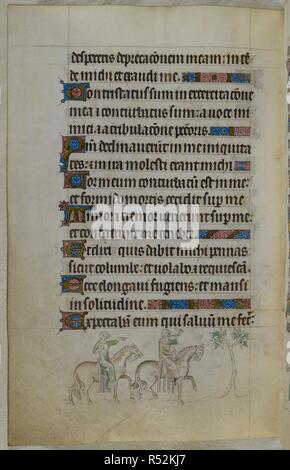 despexeris deprecacōnem meam: intē
de michi et exaudi me.
Contristatus sum in exercitacōne
mea: conturbatus sum: a voce ini
mici a tribulacōne peccoris.
Qm̄ declinauerūt in me iniquita
tes: in ira molesti erant michi
Cor meum conturbatū est in me:
et formido mortis cecidit sup me
Timor et venerunt sup me:
et me tenebre.
Et dixi quis dabit michi pennas
sicut columbe: et uolabo et requiescā.
Ecce elongaui fugiens: et mansi
in solitudine.
Expectabā eum qui saluū me fec̄:
alamy
R52KJ7